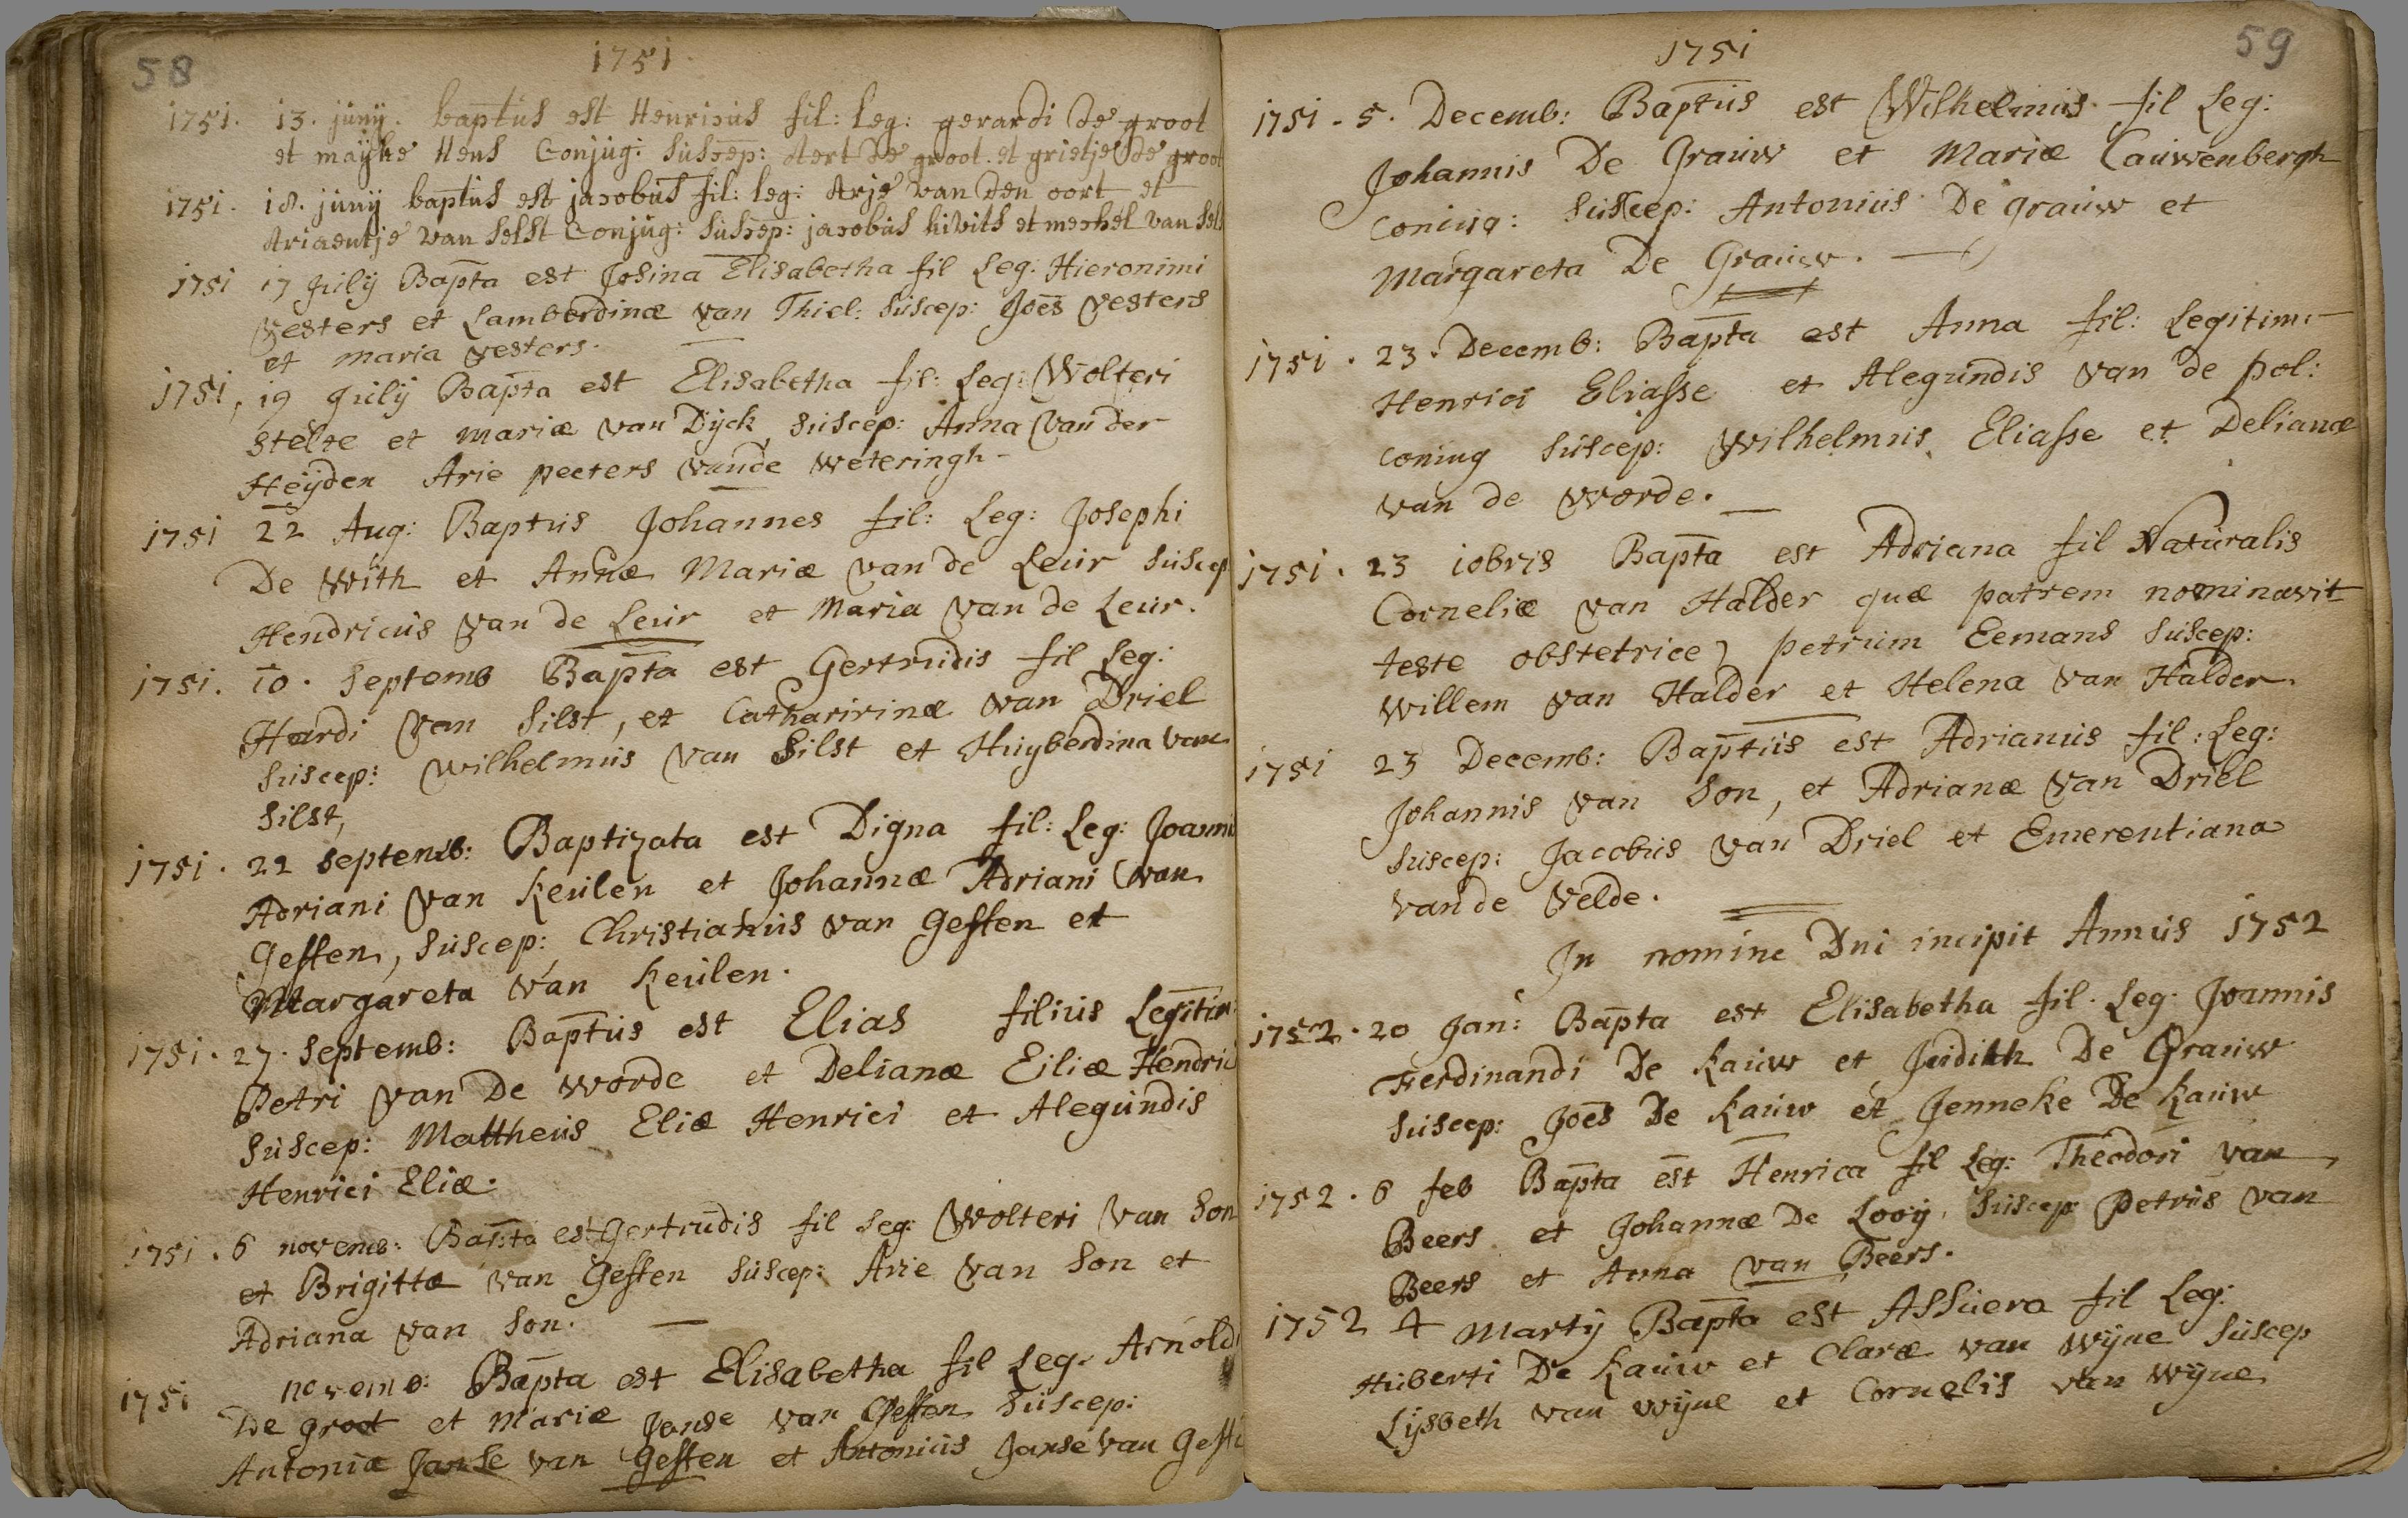 58
1751
1751. 13. juny. baptus est Henricus fil: leg: gerardi de groot
et mayke Hens Conjug: suscep: Aert de groot et grietje de groot
1751. 18. juny baptus est jacobus fil: leg: Arje van den oort et
Ariaentje van selst Conjug: suscep: jacobus kivits et mechel van sel
1751 17 July Bapta est Josina Elisabetha fil Leg: Hieronimi
Vesters et Lamberdinæ van Thiel: suscep: Joes Vesters
et maria vesters.
1751, 19 July Bapta est Elisabetha fil: Leg: Wolteri
stelte et mariæ van Dyck suscep: Anna van der
Heyden Arie peeters vande weteringh-
1751 22 Aug: Baptus Johannes fil: Leg: Josephi
De With et Annæ Mariæ van de Leur suscep
Hendricus van de Leur et Maria van de Leur.
1751. 10. Septemb Bapta est Gertrudis fil Leg:
Hardi van Silst, et Catharirinæ van Driel
suscep: wilhelmus van Silst et Huyberdina van
Silst,
1751. 22 septemb: Baptizata est Digna fil: Leg: Joanni
Adriani van Keulen et Johannæ Adriani van
Geffen, suscep: Christianus van Geffen et
Margareta van Keulen.
1751. 27. septemb: Baptus est Elias filius Legitim:
Petri van De worde et Delianæ Eiliæ Hendrici
suscep: Mattheus Eliæ Henrici et Alegundis
Henrici Eliæ.
1751. 6 novemb: Bapta est Gertrudis fil Leg: Wolteri van Son
et Brigittæ van Geffen suscep: Arie van Son et
Adriana van Son.
1751 novemb: Bapta est Elisabetha fil Leg. Arnoldi
De groot et Mariæ Janse van Geffen suscep:
Antoniæ Janse van Geffen et Antonius Janse van Geffe
59
1751
1751. 5. Decemb: Baptus est Wilhelmus fil Leg:
Johannis De Grauw et Mariæ Cauwenbergh
coniug: suscep: Antonius De grauw et
Margareta De Grauw.
1751. 23. Decemb: Bapta est Anna fil: Legitim:
Henrici Eliasse et Alegundis van de pol:
coniug suscep: Wilhelmus Eliasse et Delianæ
van de worde.
1751. 23 10bris Bapta est Adriana fil Naturalis
Corneliæ van Halder quæ patrem nominavit
teste obstetrice, petrum Eemans suscep:
Willem van Halder et Helena van Halder.
1751 23 Decemb: Baptus est Adrianus fil: Leg:
Johannis van Son, et Adrianæ van Driel
suscep: Jacobus van Driel et Emerentiana
vande Velde.
In nomine Dni incipit Annus 1752
1752. 20 Jan: Bapta est Elisabetha fil. Leg. Joannis
Ferdinandi De Kauw et Judith De Grauw
suscep: Joes De Kauw et Jenneke De Kauw
1752. 6 feb Bapta est Henrica fil Leg: Theodori van
Beers et Johannæ De Looy, suscep Petrus van
Beers et Anna van Beers.
1752 4 Marty Bapta est Assuera fil Leg:
Huberti De Kauw et Claræ van wyne suscep
Lysbeth van wyne et Cornelis van wyne